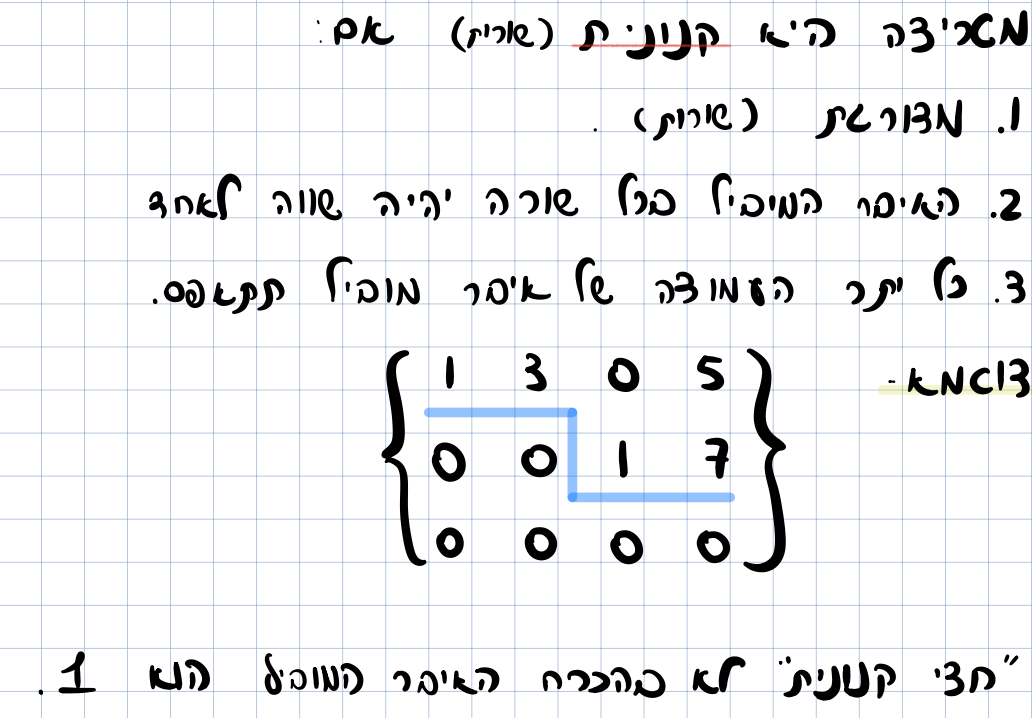 מטריצה היא קנונית (שורית) אם:
1. מדורגת (שורות).
2. האיבר המוביל בכל שורה יהיה שווה לאחד
3. כל יתר העמודה של איבר מוביל תתאפס.
דוגמא -
1 3 0 5
0 0 1 7
0 0 0 0
"חצי קנונית" לא בהכרח האיבר המוביל הוא 1.